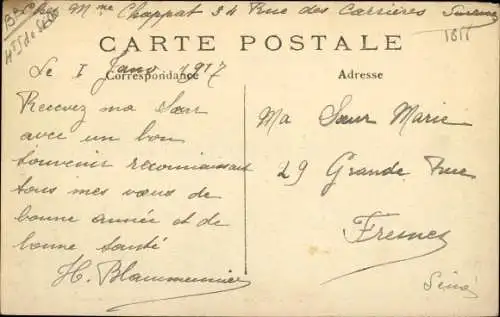 Mme Chappat 34 Rue des Carrières Suresnes
CARTE POSTALE
Correspondance
Adresse
Le I Janv 1917
Recevez ma Sœur
avec un bon
souvenir reconnaissant
tous mes vœux de
bonne année et de
bonne santé
Ma Sœur Marie
29 Grande Rue
Fresnes
Seine